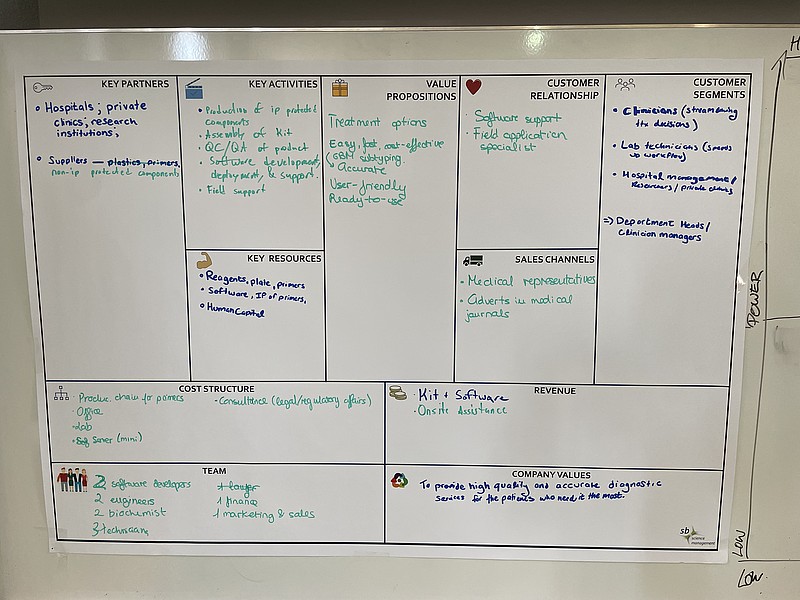 KEY PARTNERS
Hospitals; private
clinics; research
institutions;
Suppliers — plastics, primers,
non-ip protected components
KEY ACTIVITIES
Production of ip protected
components
Assembly of Kit
QC/QA of product
Software development,
deployment, & support.
Field support
KEY RESOURCES
Reagents, plate, primers
Software, IP of primers,
Human Capital
VALUE
PROPOSITIONS
Treatment options
Easy, fast, cost-effective
GBM subtyping.
Accurate
User-friendly
Ready-to-use
CUSTOMER
RELATIONSHIP
Software support
Field application
specialist
SALES CHANNELS
Medical representatives
Adverts in medical
journals
CUSTOMER
SEGMENTS
Clinicians (streamlining
the decisions)
Lab technicians (speeds
up workflow)
Hospital management/
Researchers/private clinics
=> Department Heads/
Clinician managers
COST STRUCTURE
Produc. chain for primers
Office
Lab
Server (mini)
Consultance (legal/regulatory affairs)
REVENUE
Kit + Software
Onsite Assistance
TEAM
2 software developers
2 engineers
2 biochemist
3 technician
1 lawyer
1 finance
1 marketing & sales
COMPANY VALUES
To provide high quality and accurate diagnostic
services for the patients who need it the most.
sb
science
management
H
POWER
LOW
LOW